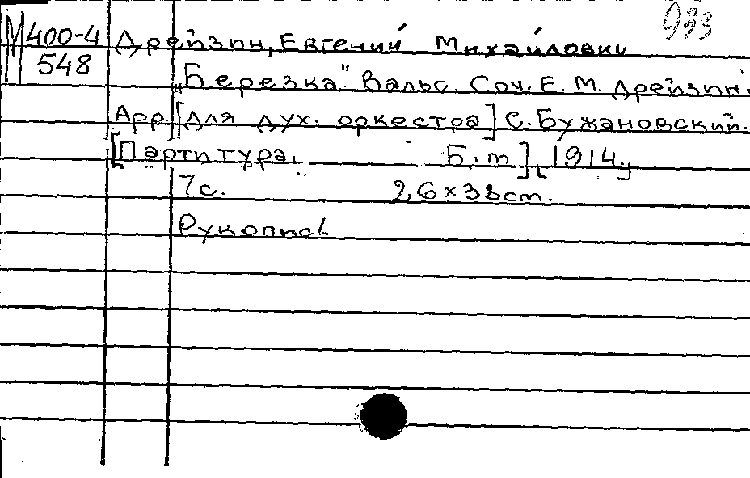 933
М 400-4 Дрейзин, Евгений Михайлович
548
„Березка" Вальс. Соч. Е. М. Дрейзин.
Арр. [для дух. оркестра] С. Бужановский.
[Партитура. Б. м.], [1914.]
7 с. 26×38 cm.
Рукопись